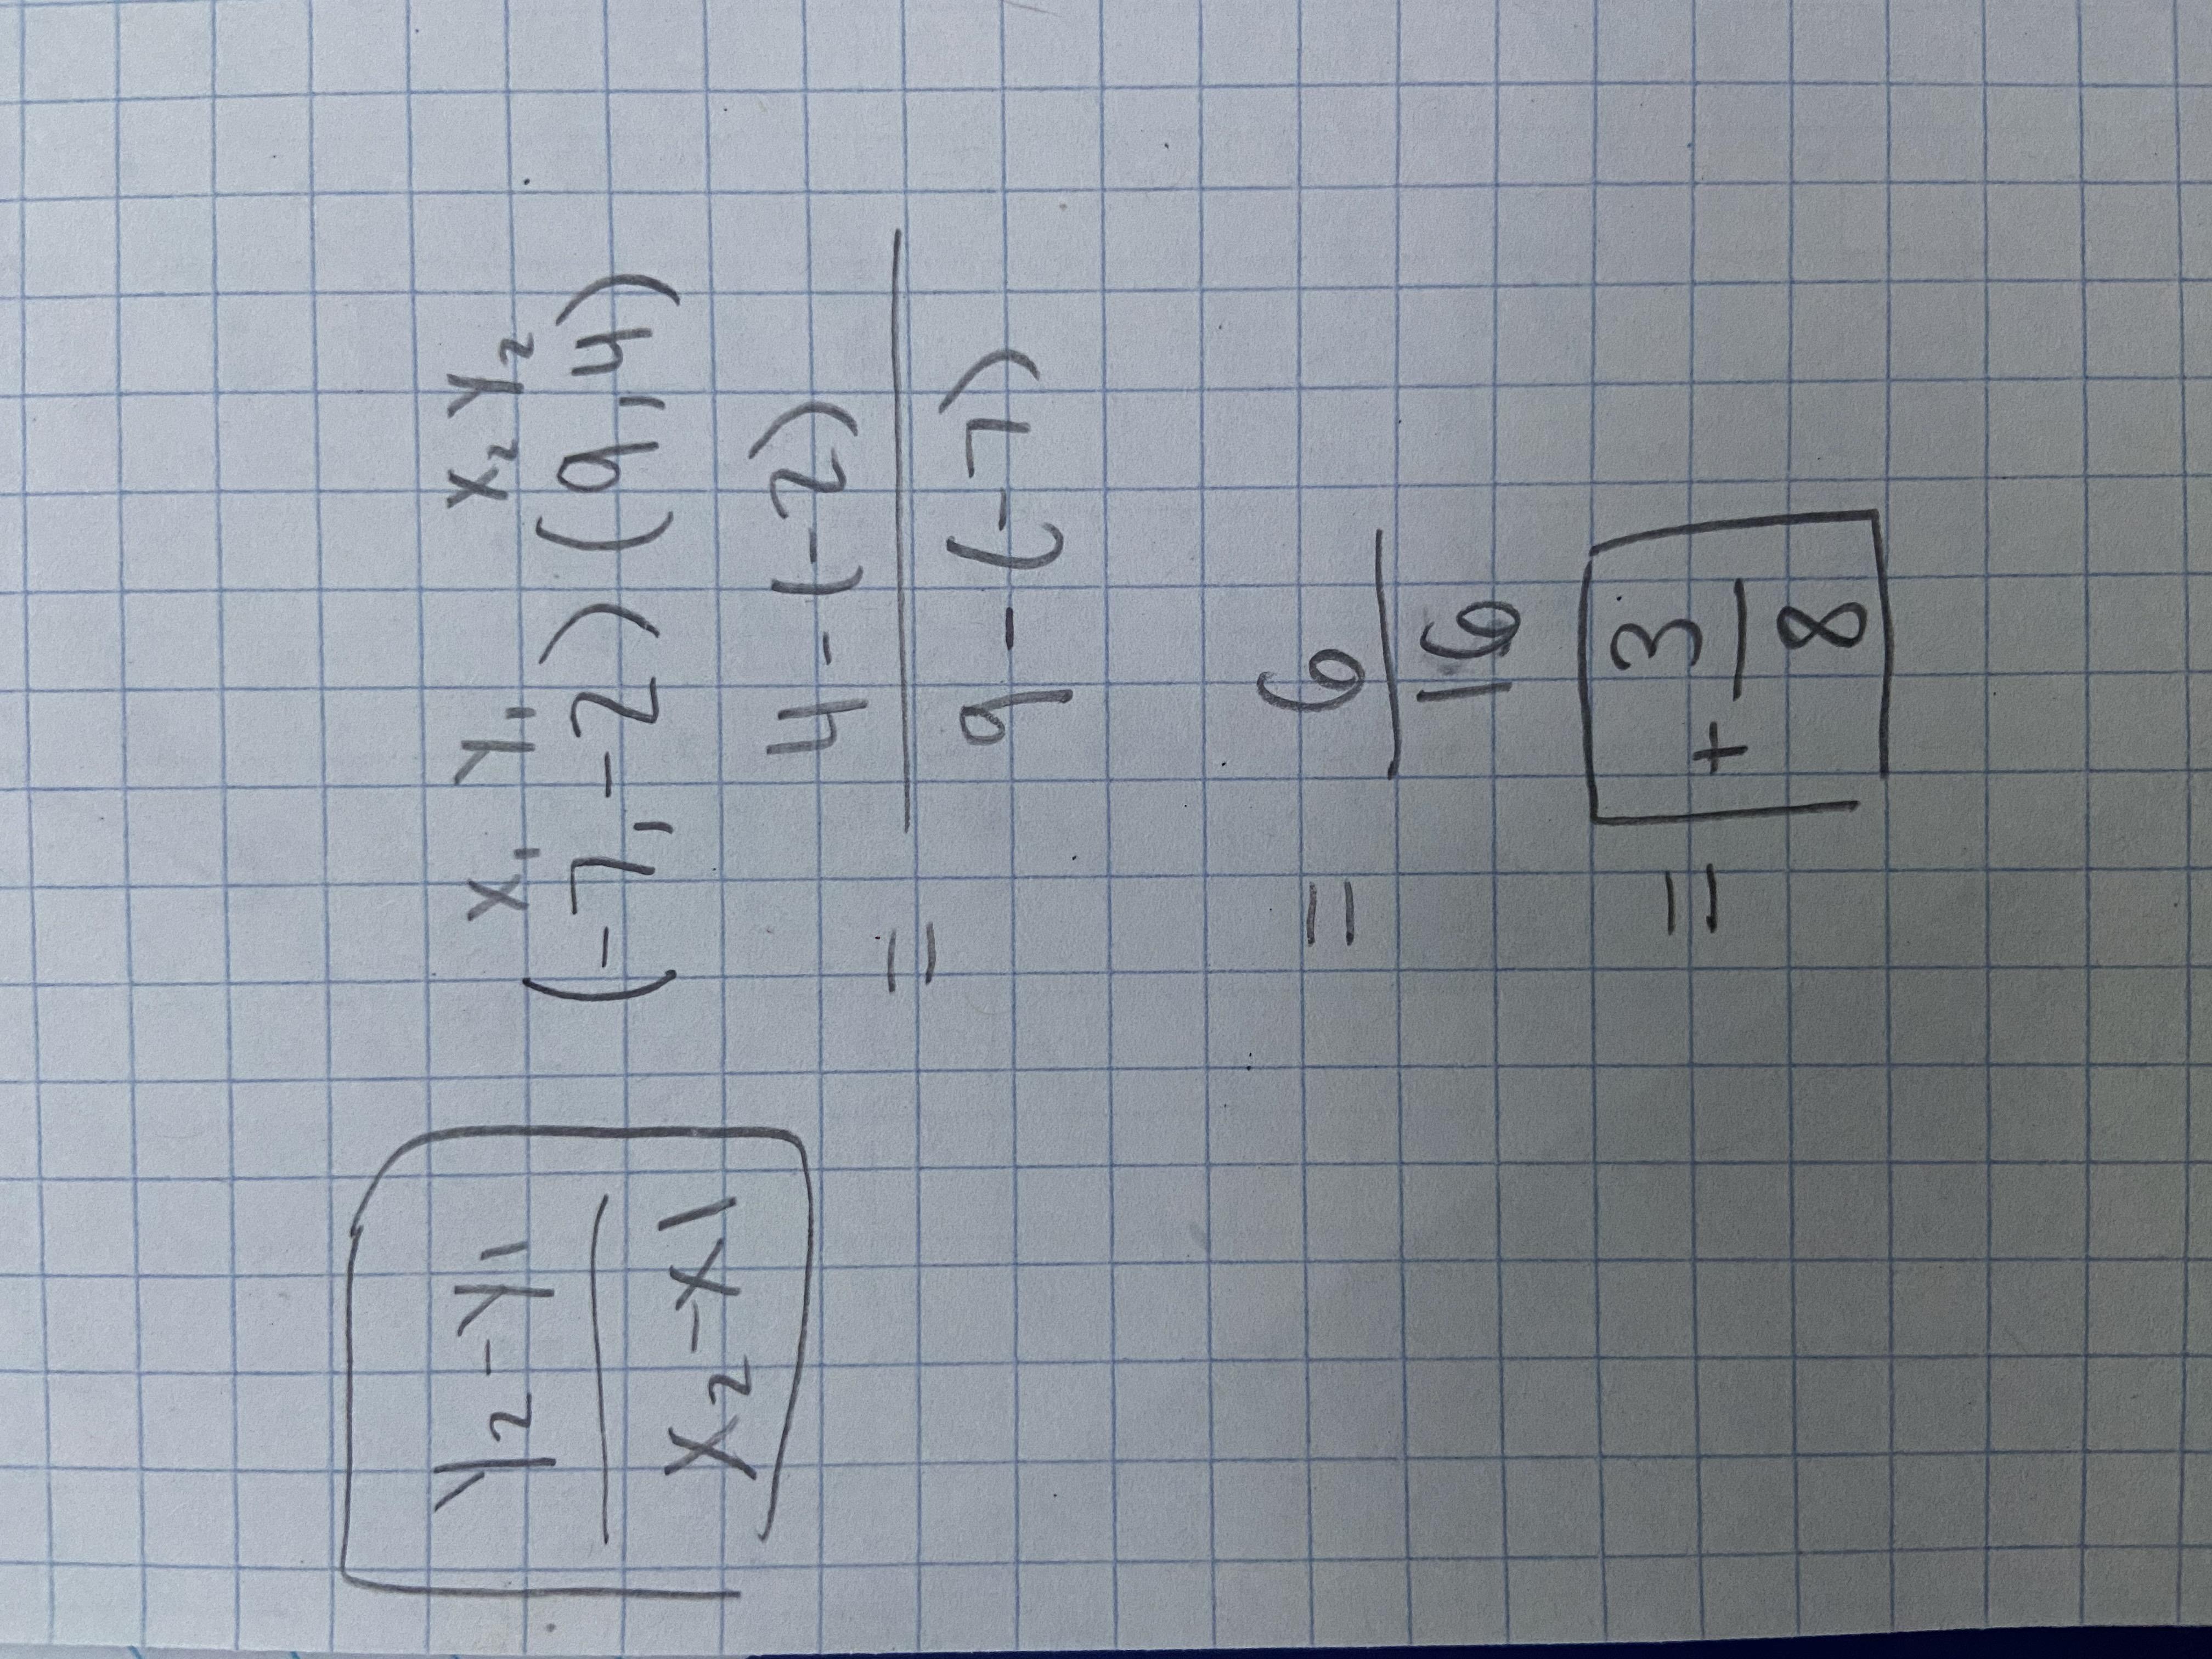 y₂-y₁
x₂-x₁
x₁ y₁ x₂ y₂
(-7,-2) (9,4)
= 4-(-2)
9-(-7)
= 6
16
= + 3
8